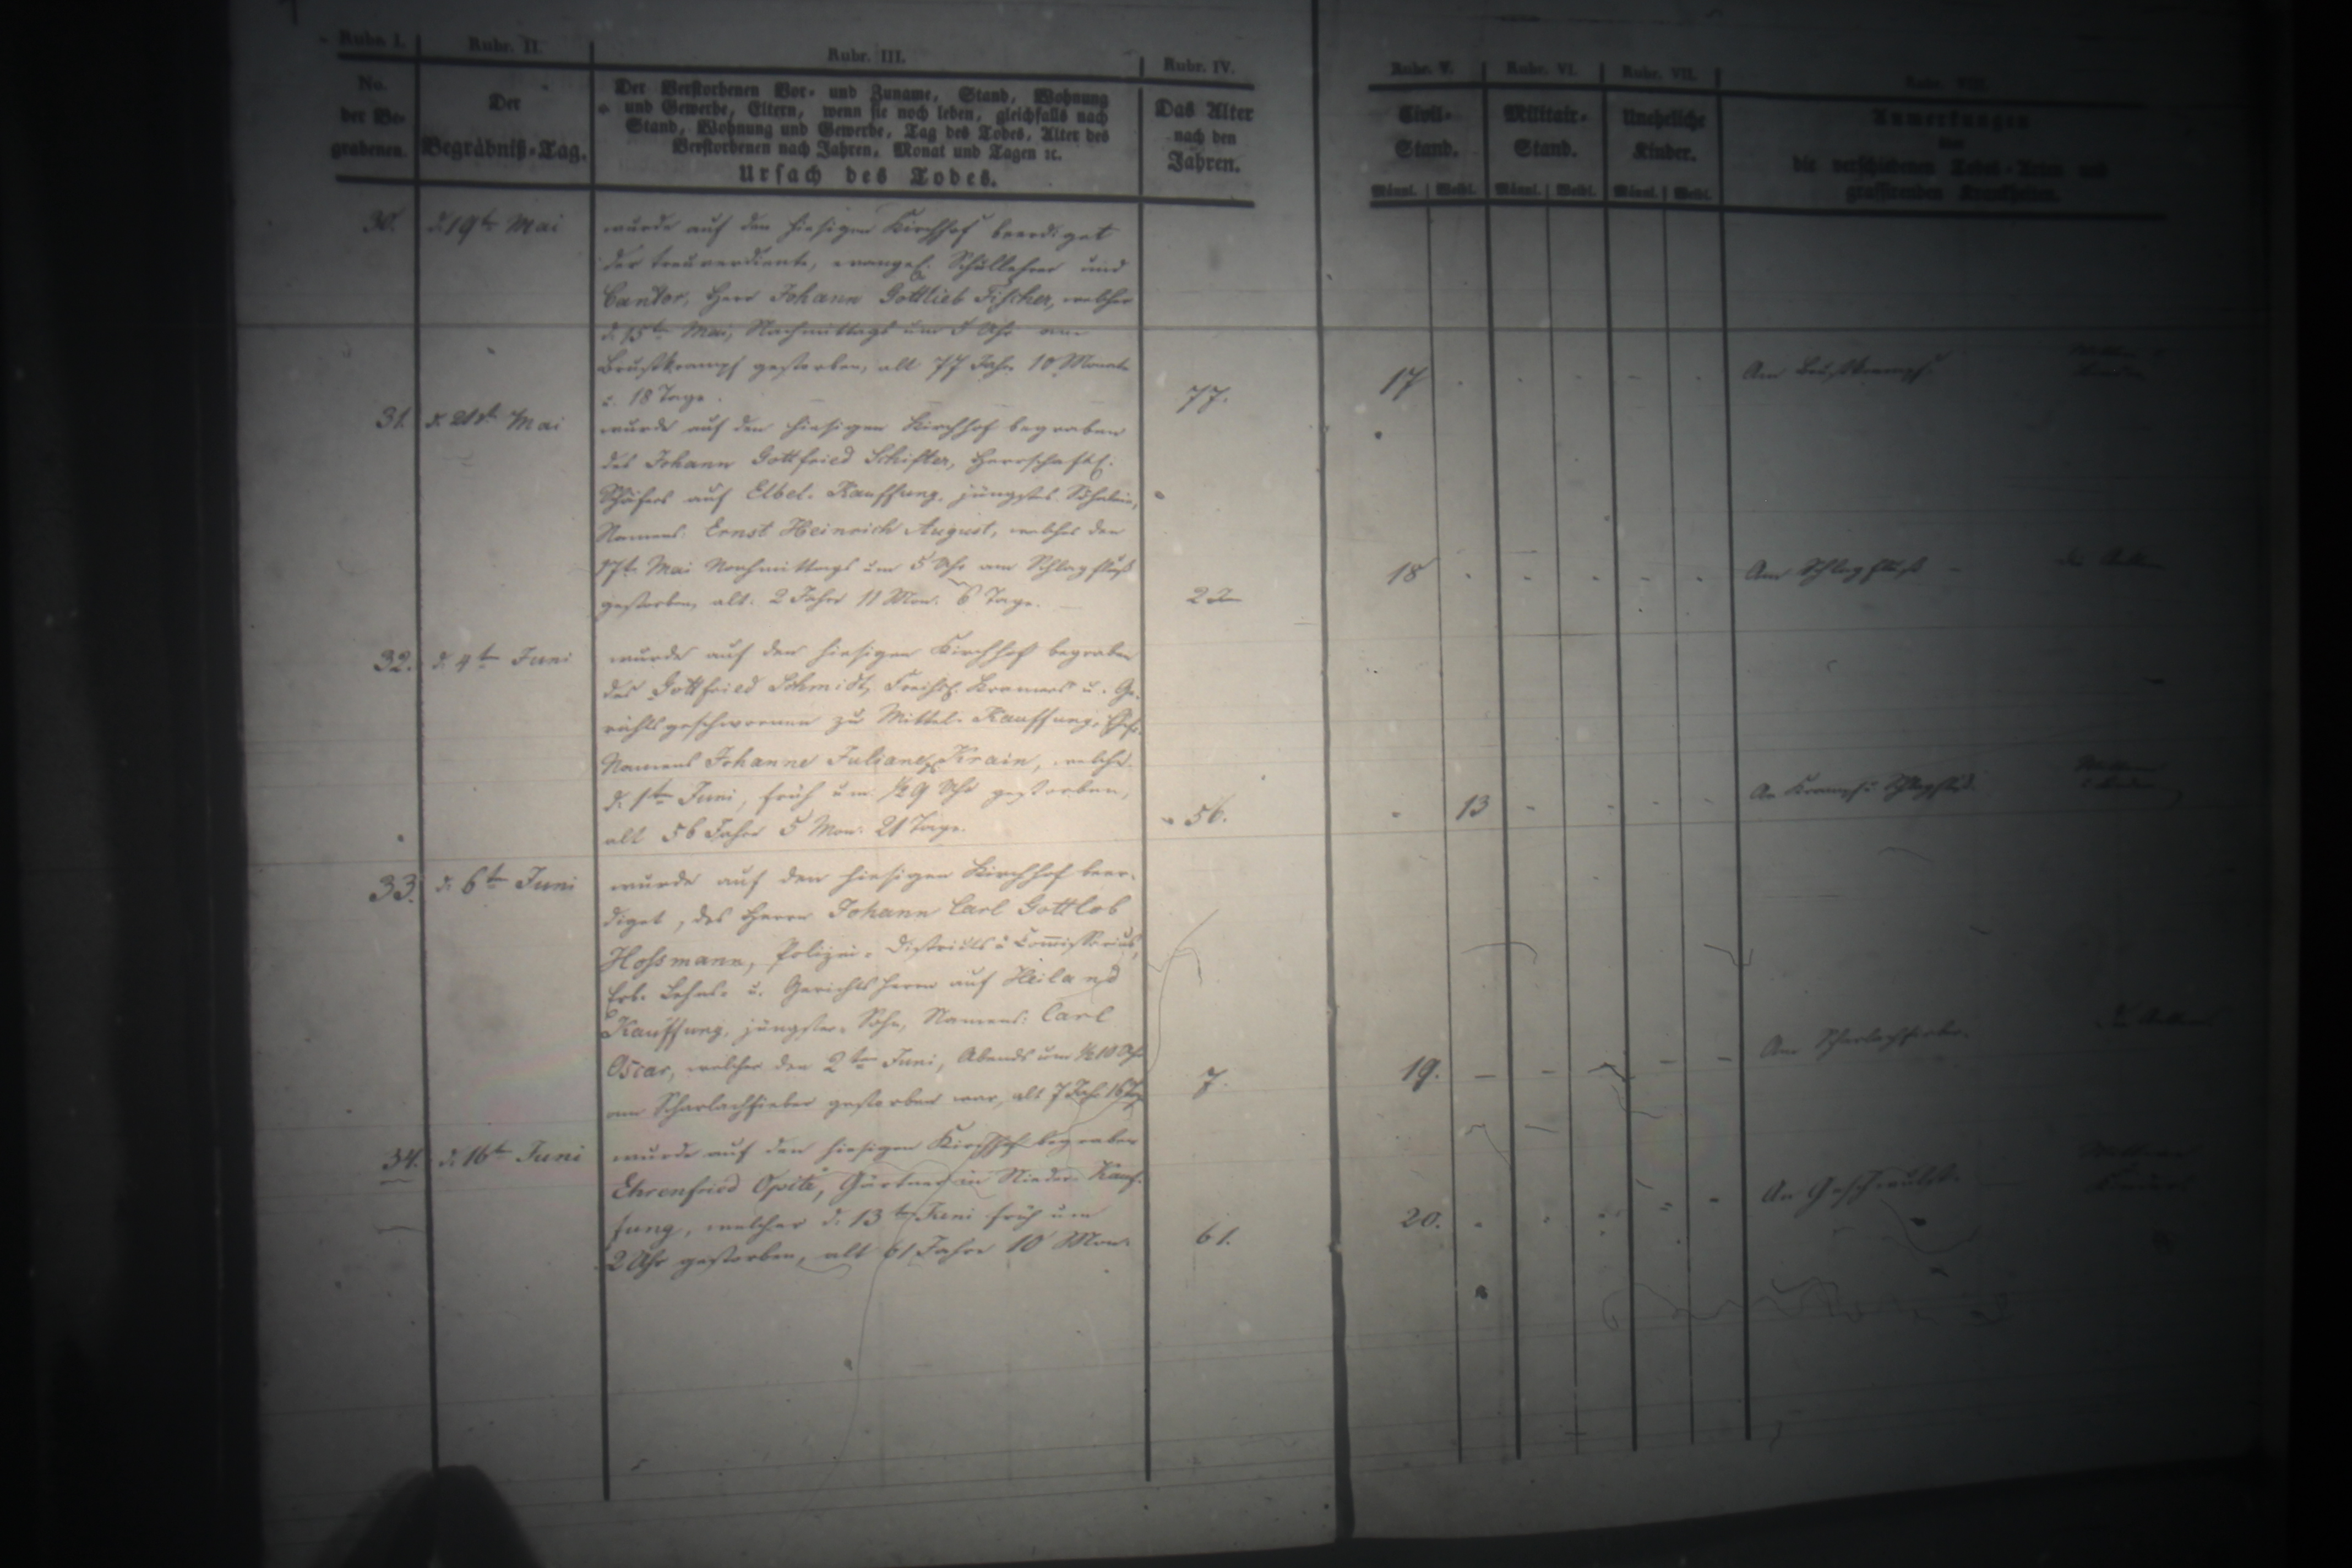 Rubr. I.
Rubr. II.
Rubr. III.
Rubr. IV.
Rubr. V.
Rubr. VI.
Rubr. VII.
Rubr. VIII.
No.
der Be-
grabenen.
Der
Begräbniß-Tag.
Der Verstorbenen Vor- und Zuname, Stand, Wohnung
und Gewerbe, Eltern, wenn sie noch leben, gleichfalls nach
Stand, Wohnung und Gewerbe, Tag des Todes, Alter des
Verstorbenen nach Jahren, Monat und Tagen ꝛc.
Ursach des Todes.
Das Alter
nach den
Jahren.
Civil-
Stand.
Männl. Weibl.
Militair-
Stand.
Männl. Weibl.
Uneheliche
Kinder.
Männl. Weibl.
Anmerkungen
die verschiedenen Todes-Arten und
grassirenden Krankheiten.
30. d. 19te Mai
wurde auf den hiesigen Kirchhof beerdiget
der treuverdiente, evangel. Schullehrer und
Cantor, Herr Johann Gottlieb Fischer, welcher
d. 15te Mai, Nachmittags um 5 Uhr am
Brustkrampf gestorben, alt 77 Jahr 10 Monate
u. 18 Tage.
77. 17 Am Brustkrampf.
31. d. 21ste Mai
wurde auf den hiesigen Kirchhof begraben
des Johann Gottfried Schifter, herrschaftl.
Schäfers auf Elbel-Kauffung, jüngstes Söhnlein,
Namens: Ernst Heinrich August, welches den
17te Mai Nachmittags um 5 Uhr am Schlagfluß
gestorben, alt: 2 Jahre 11 Mon. 6 Tage.
2 18 Am Schlagfluß
32. d. 4te Juni
wurde auf den hiesigen Kirchhof begraben
des Gottfried Schmidt, Kramers u. Ge-
richtsgeschwornen zu Mittel-Kauffung,
Namens Johanne Juliane Krain, welche
d. 1te Juni, früh um ½ 9 Uhr gestorben,
alt 56 Jahre 5 Mon. 21 Tage.
56. 13 An Krampf u. Schlagfluß
33. d. 6te Juni
wurde auf den hiesigen Kirchhof beer-
diget, des Herrn Johann Carl Gottlob
Hoßmann, Polizei-Districts-Commissarius,
Erb- Lehns- u. Gerichtsherrn auf Heiland
Kauffung, jüngster Sohn, Namens: Carl
Oscar, welcher den 2te Juni, Abends um ½ 10 Uhr
am Scharlachfieber gestorben war, alt 7 Jahr 16 Tg
7. 19. Am Scharlachfieber.
34. d. 16te Juni
wurde auf den hiesigen Kirchhof begraben
Ehrenfried Opitz, Gärtner in Nieder-Kauf-
fung, welcher d. 13te Juni früh um
2 Uhr gestorben, alt 61 Jahre 10 Mon.
61. 20. An Geschwulst.